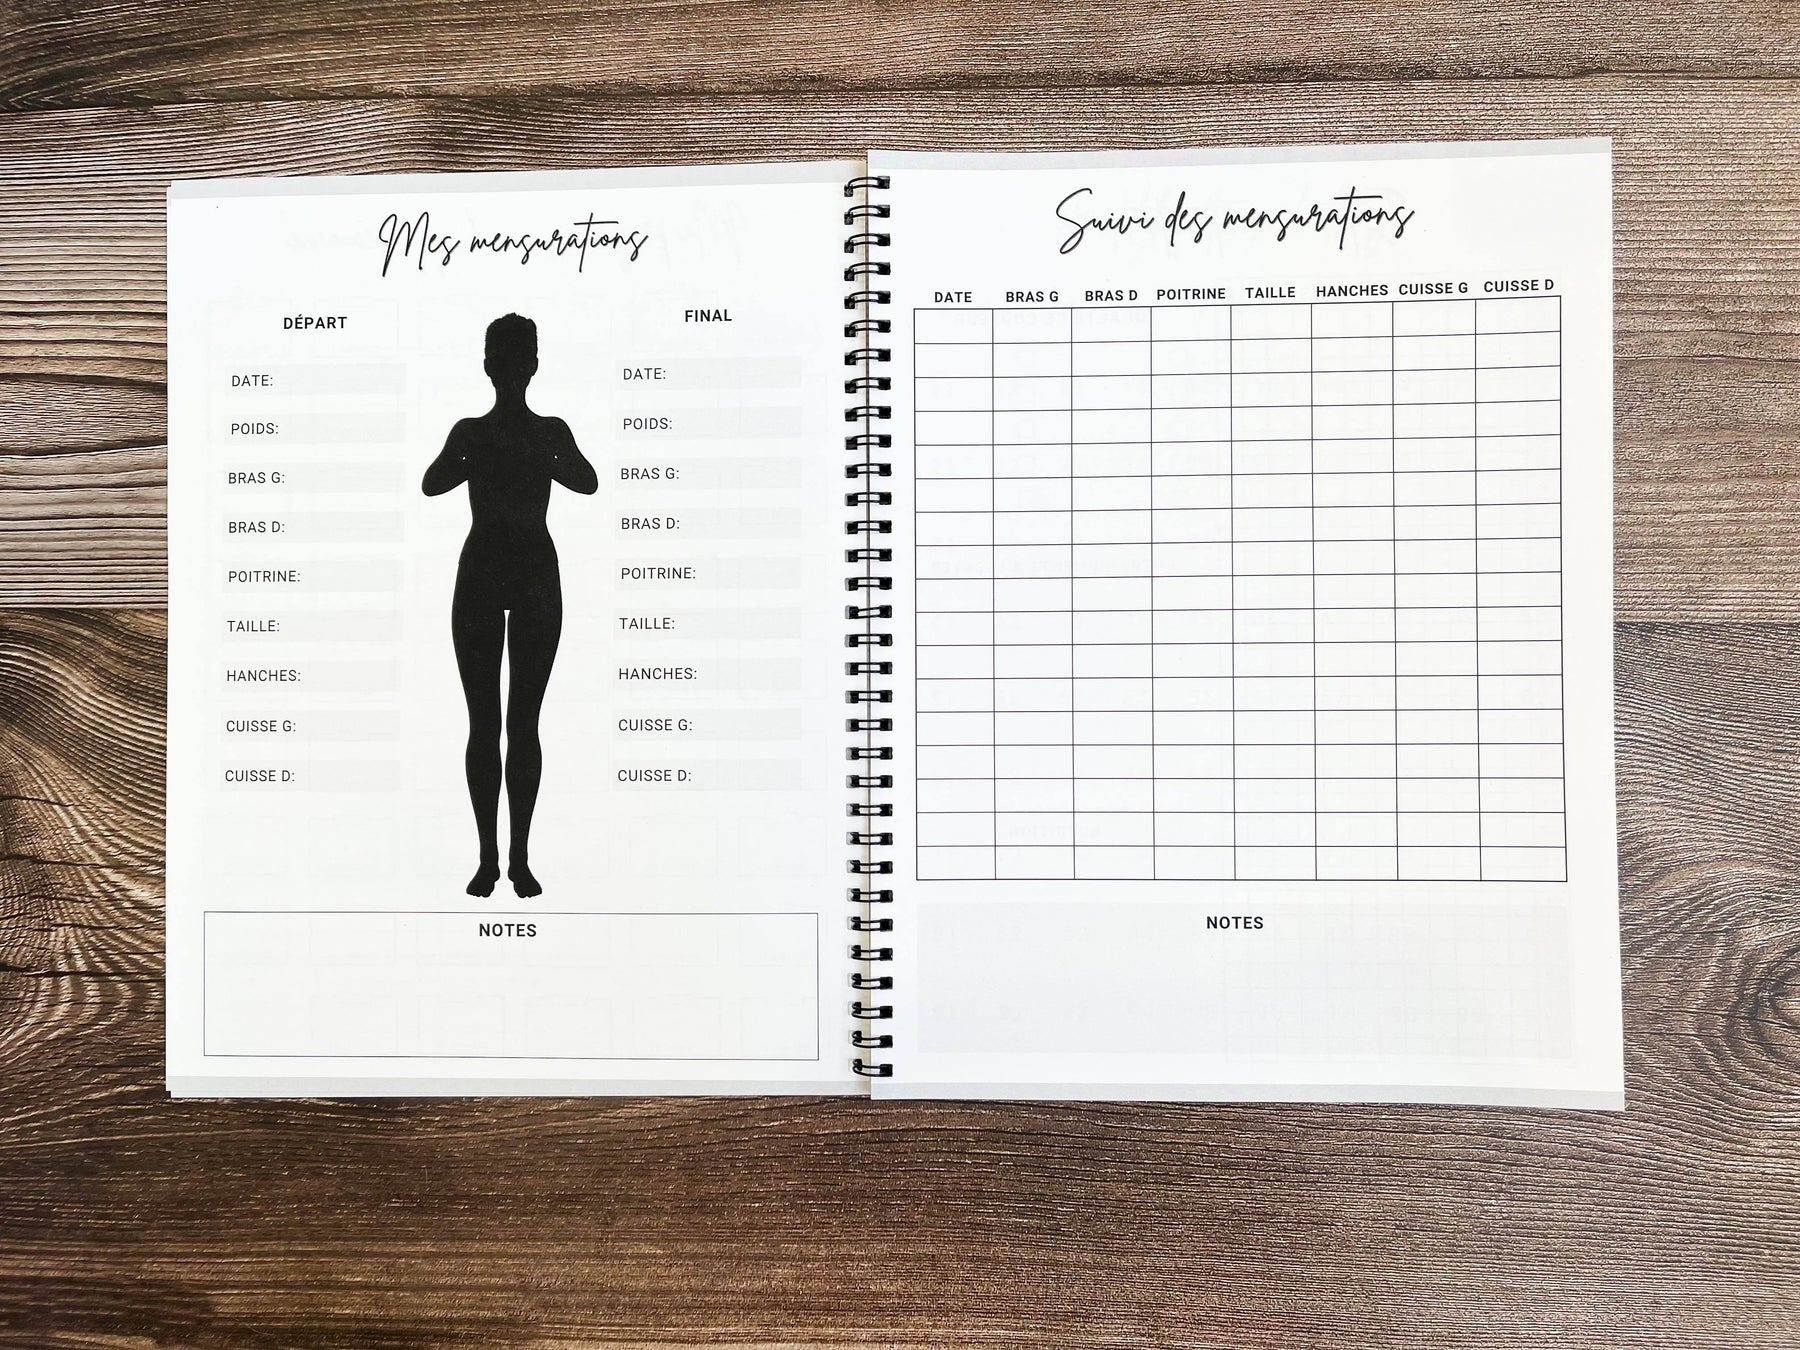 Mes mensurations
DÉPART
DATE:
POIDS:
BRAS G:
BRAS D:
POITRINE:
TAILLE:
HANCHES:
CUISSE G:
CUISSE D:
FINAL
DATE:
POIDS:
BRAS G:
BRAS D:
POITRINE:
TAILLE:
HANCHES:
CUISSE G:
CUISSE D:
NOTES
Suivi des mensurations
DATE BRAS G BRAS D POITRINE TAILLE HANCHES CUISSE G CUISSE D
NOTES